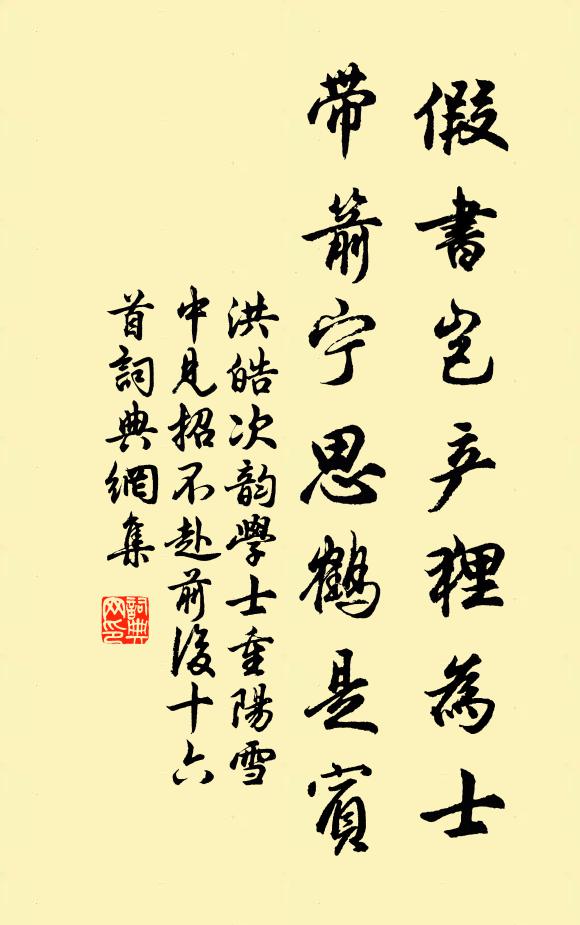 假書豈产狸為士
带箭宁思鶴是賓
洪皓次韵學士重陽雪
中見招不赴前後十六
首詞典網集
詞典网印